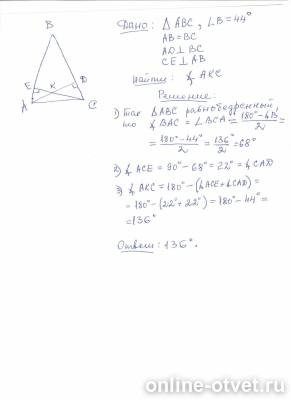 Дано: △ABC, ∠B=44°
AB=BC
AD⊥BC
CE⊥AB
Найти: ∠AKC
Решение:
1) Так △ABC равнобедренный,
то ∠BAC = ∠BCA = (180°-∠B)/2 =
= (180°-44°)/2 = 136°/2 = 68°
2) ∠ACE = 90°-68° = 22° = ∠CAD
3) ∠AKC = 180° - (∠ACE+∠CAD) =
= 180° - (22°+22°) = 180° - 44° =
= 136°
Ответ: 136°.
B
E K D
A C
online-otvet.ru